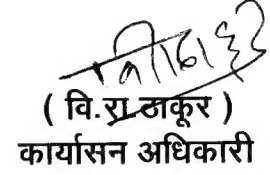 ( वि.रा.ठाकूर )
कार्यासन अधिकारी